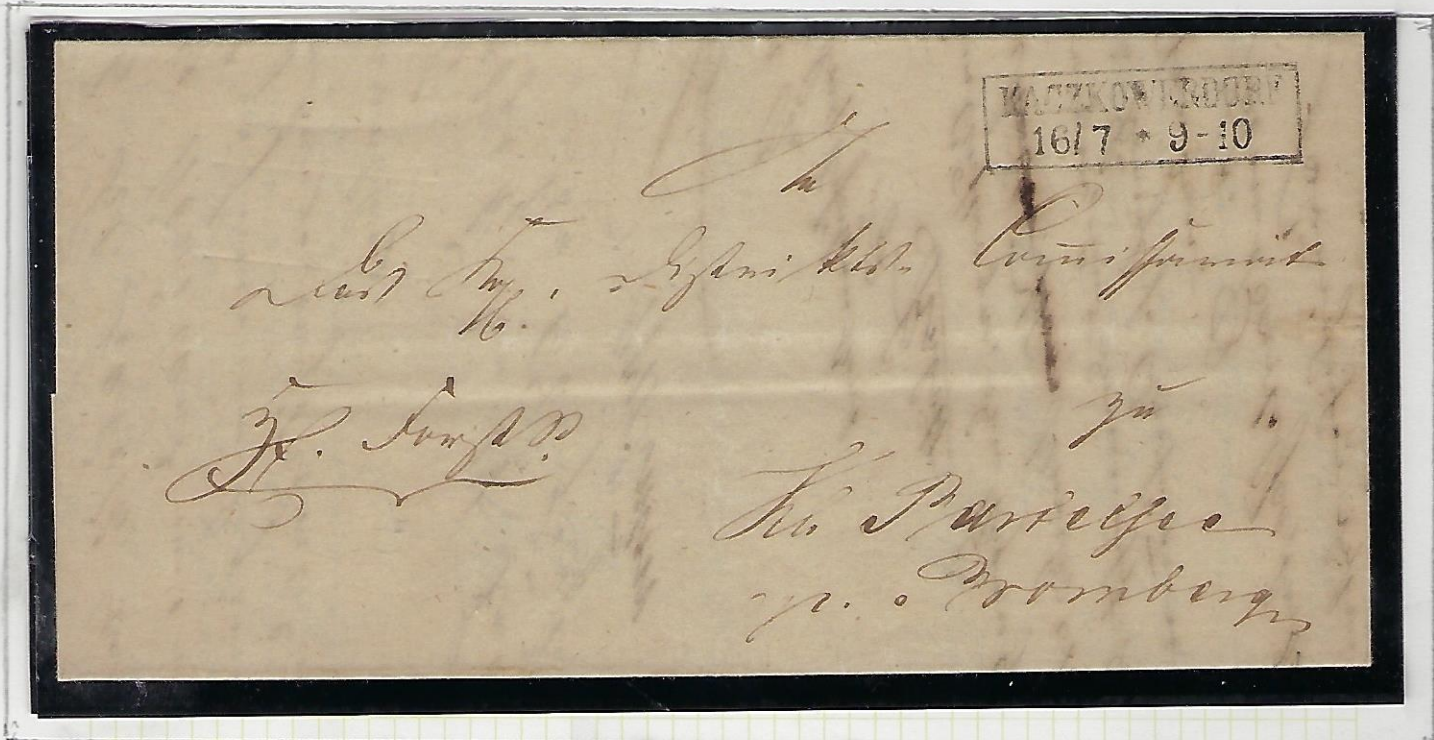 KACZKOWERDORF
16/7 * 9-10
An
Das Kgl. Distrikts Commissariat
zu
Kl. Bartelsee
p. Bromberg